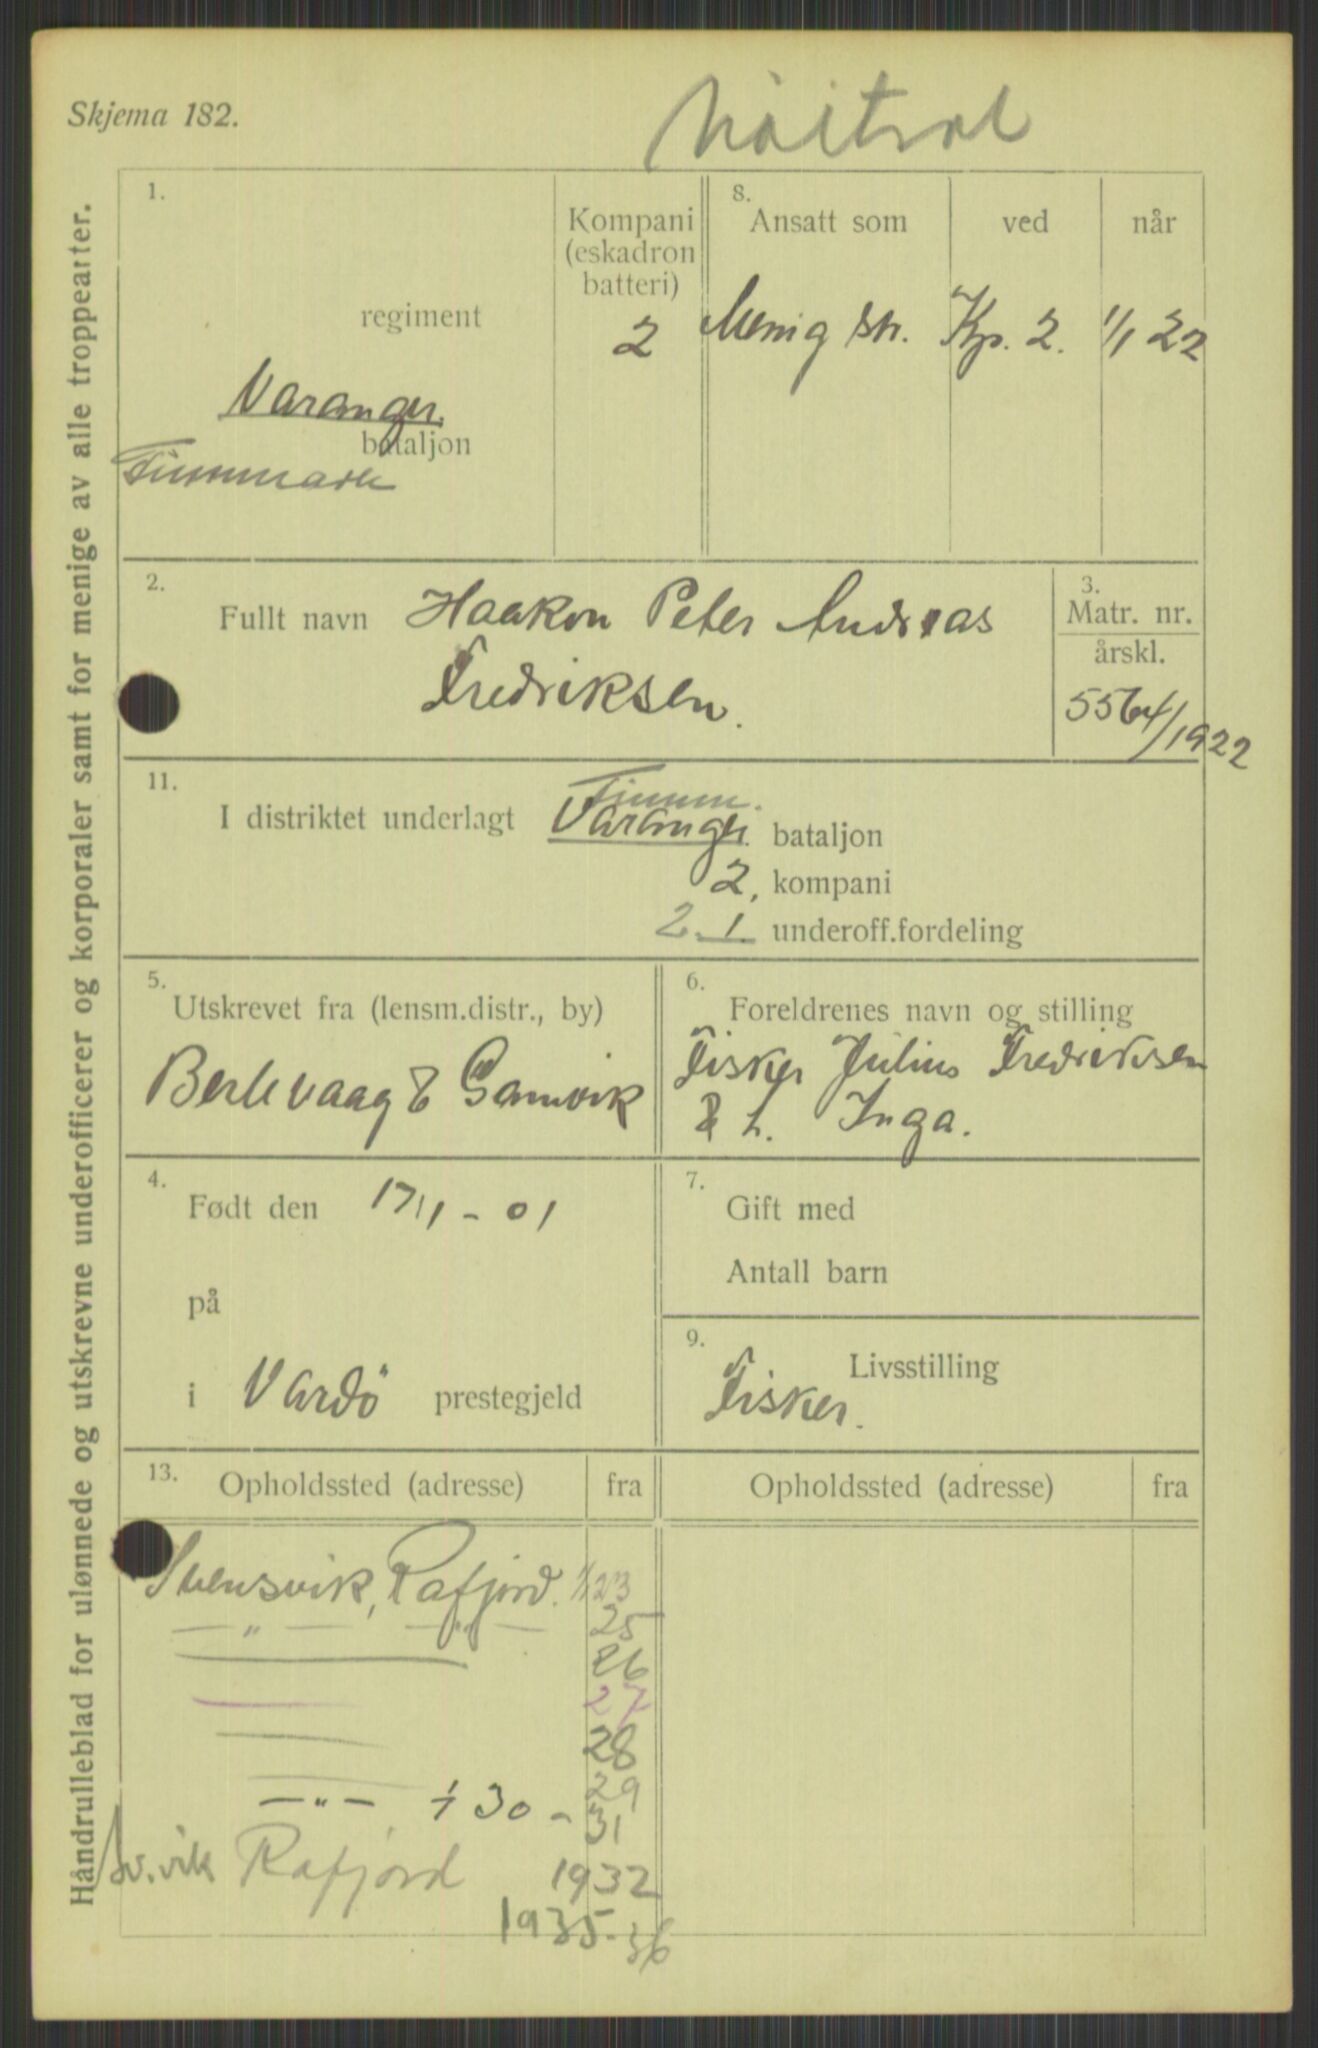 Skjema 182.
Nöitral
Håndrulleblad for ulønnede og utskrevne underofficerer og korporaler samt for menige av alle troppearter.
1.
regiment
Varanger.
bataljon
Finnmark
Kompani
(eskadron
batteri)
2
8.
Ansatt som
ved
når
Menig str. Kp. 2. 1/1 22
2.
Fullt navn Haakon Peter Andreas
Fredriksen.
3.
Matr. nr.
årskl.
5564/1922
11.
Finnm.
I distriktet underlagt Varanger. bataljon
2, kompani
2.1. underoff.fordeling
5.
Utskrevet fra (lensm.distr., by)
Berlevaag & Gamvik
6.
Foreldrenes navn og stilling
Fisker Julius Fredriksen
& h. Inga.
4.
Født den 17/1 - 01
på
i Vardö prestegjeld
7.
Gift med
Antall barn
9.
Livsstilling
Fisker.
13.
Opholdssted (adresse) fra
Opholdssted (adresse) fra
Svensvik, Rafjord. 1/1 23
— " — — " — 25
26
27
28
29
— " — 30 - 31
Sv.vik Rafjord 1932
1935-36